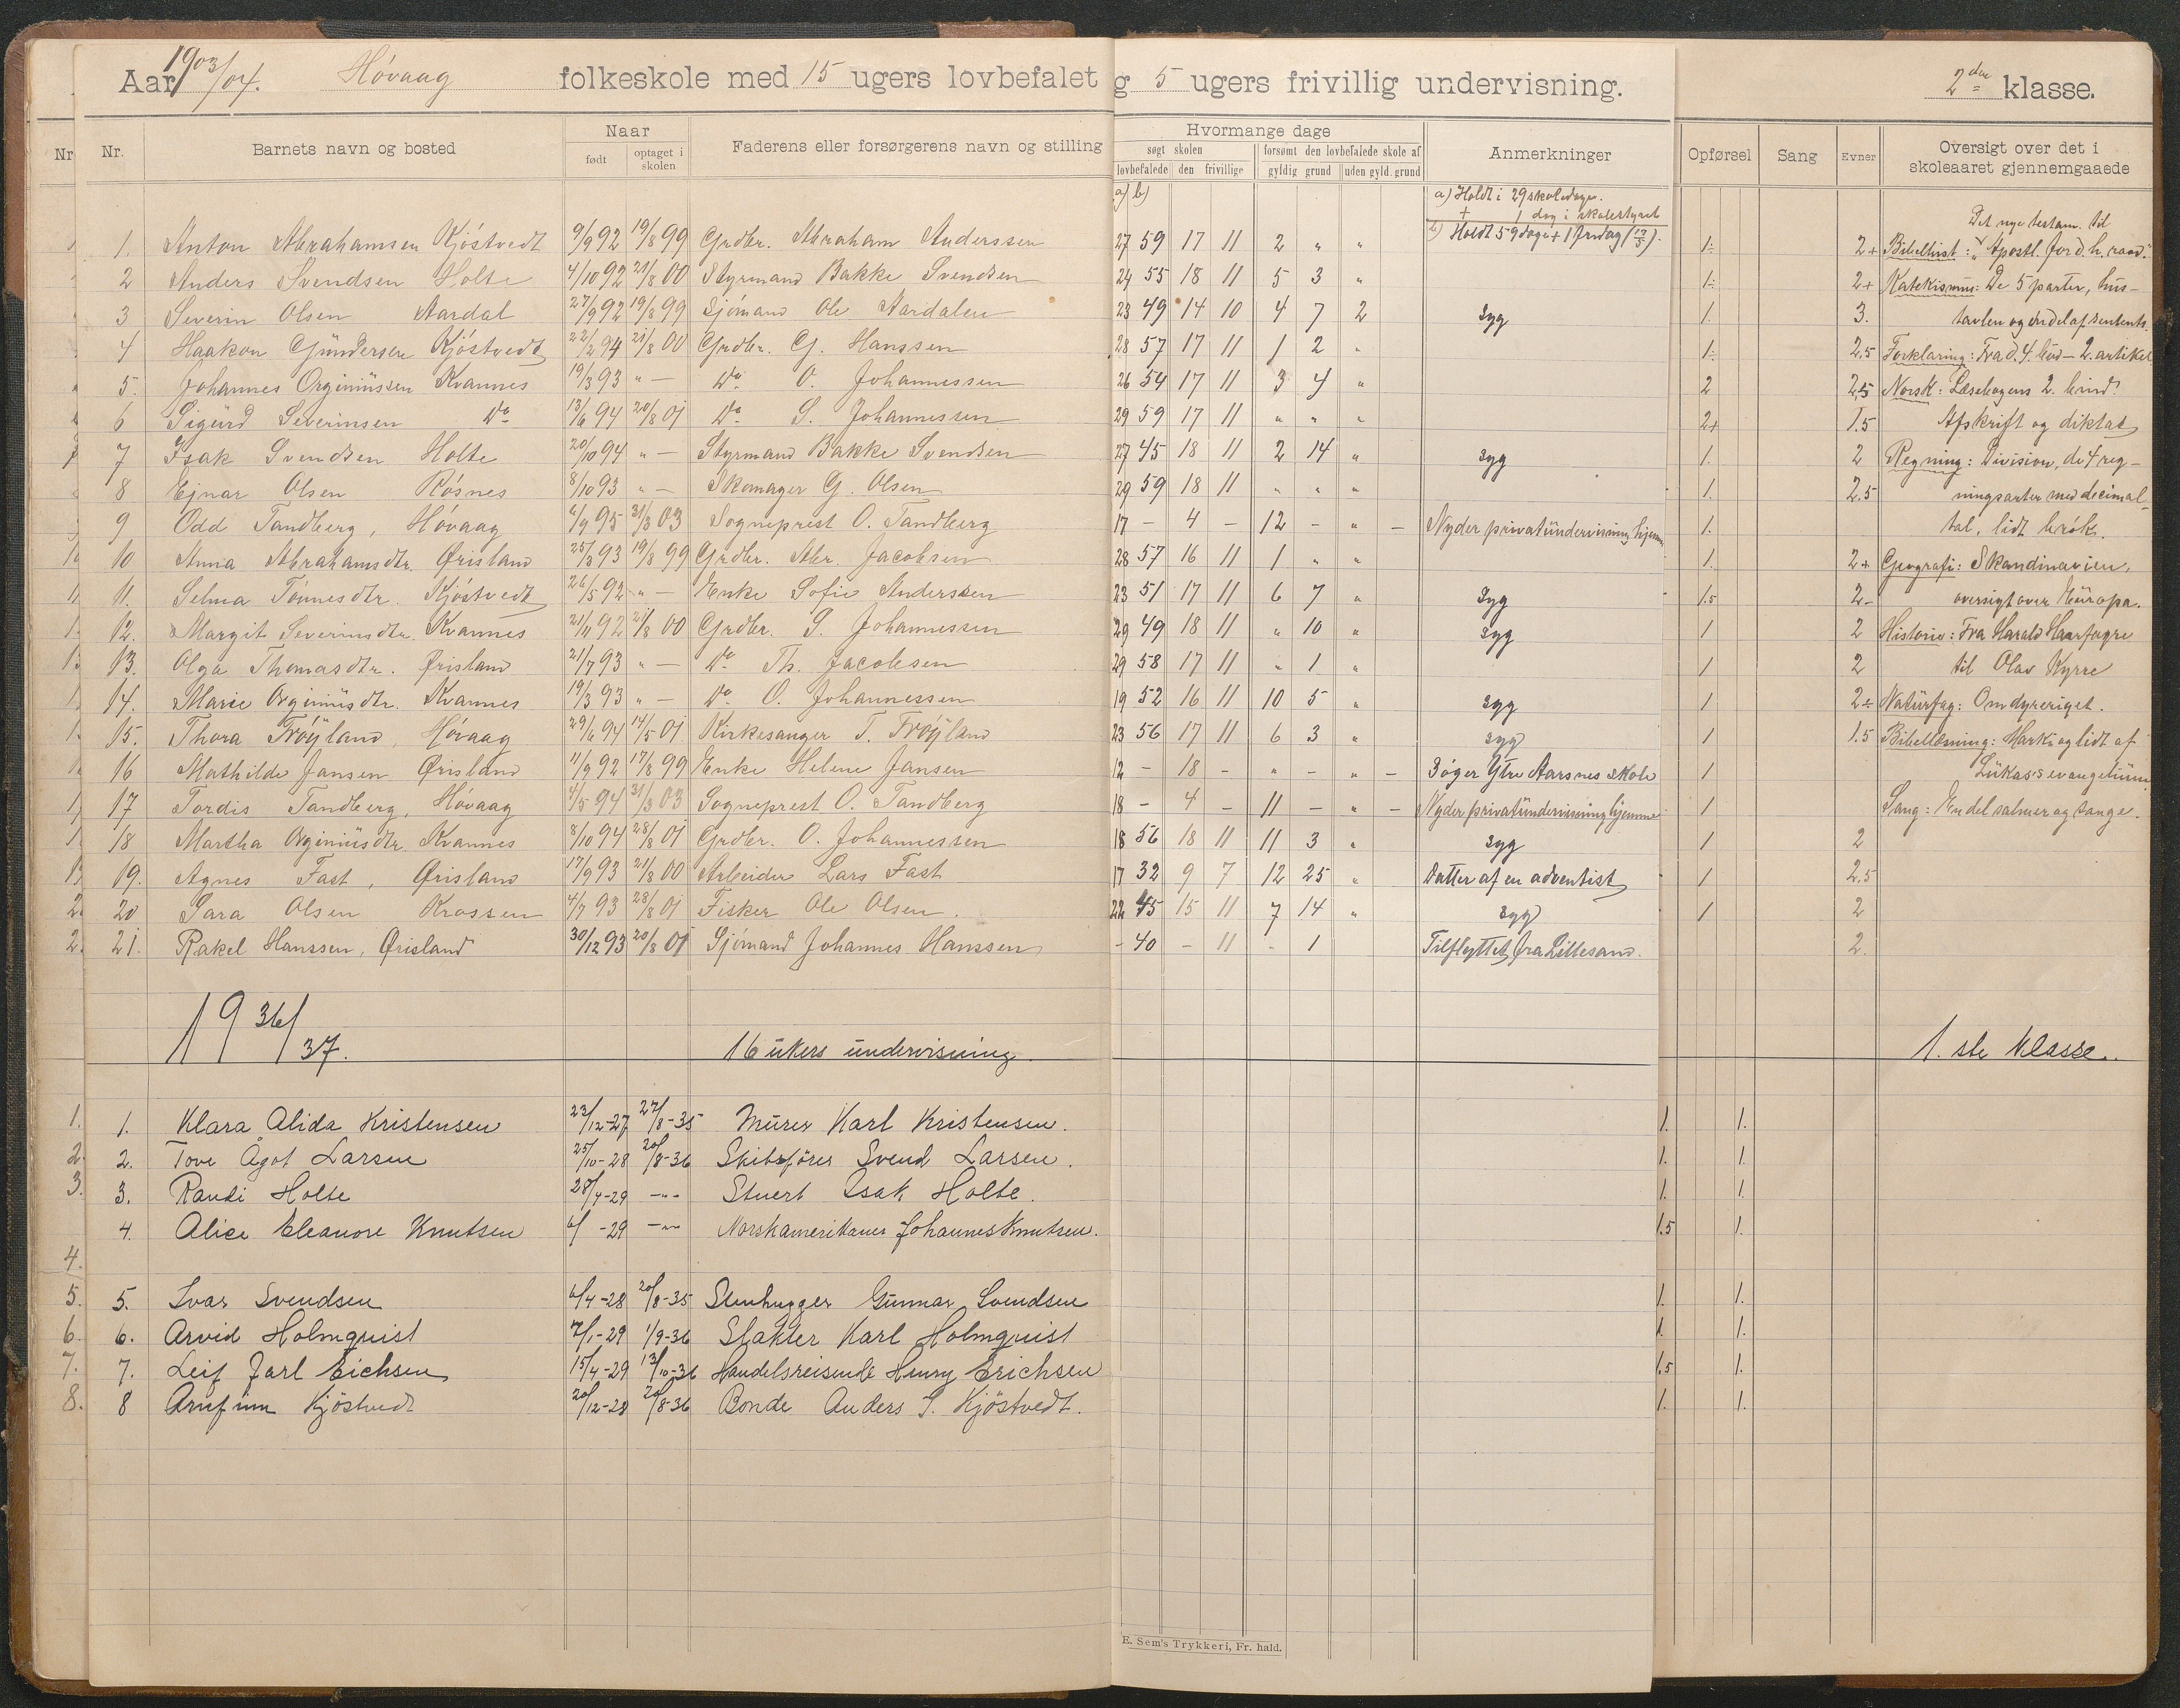 Aar 1903/04. Høvaag folkeskole med 15 ugers lovbefalet g 5 ugers frivillig undervisning. 2den klasse.
Nr Nr. Barnets navn og bosted Naar født optaget i skolen Faderens eller forsørgerens navn og stilling Hvormange dage søgt skolen lovbefalede den frivillige forsømt den lovbefalede skole af gyldig grund uden gyld. grund Anmerkninger Opførsel Sang Evner Oversigt over det i skoleaaret gjennemgaaede
a) b) a) Holdt i 29 skoledage.
+ 1 dag i skolestyret
b) Holdt 59 dage + 1 fridag (17/5). Det nye testam. til
1. Anton Abrahamsen Kjøstvedt 9/9 92 19/8 99 Grdbr. Abraham Anderssen 27 59 17 11 2 " " 1÷ 2+ Bibelhist: "Apostl. for d. h. raad".
2 Anders Svendsen Holte 4/10 92 21/8 00 Styrmand Bakke Svendsen 24 55 18 11 5 3 " 1÷ 2+ Katekismus: De 5 parter, hus-
3 Severin Olsen Aardal 27/9 92 19/8 99 Sjømand Ole Aardalen 23 49 14 10 4 7 2 syg 1. 3. tavlen og endel af sentents.
4 Haakon Gundersen Kjøstvedt 22/2 94 21/8 00 Grdbr. G. Hanssen 28 57 17 11 1 2 " 1÷ 2.5 Forklaring: Fra d. 4. bud - 2. artikel
5. Johannes Orginiussen Kvannes 19/3 93 " - Do O. Johannessen 26 54 17 11 3 4 " 2 2.5 Norsk: Læsebogens 2. bind.
6 Sigurd Severinsen Do 13/6 94 20/8 01 Do S. Johannessen 29 59 17 11 " " " 2+ 1.5 Afskrift og diktat
7 Isak Svendsen Holte 20/10 94 " - Styrmand Bakke Svendsen 27 45 18 11 2 14 " syg 1. 2 Regning: Division, de 4 reg-
8 Ejnar Olsen Røsnes 8/10 93 " - Skomager G. Olsen 29 59 18 11 " " " 1. 2.5 ningsarter med decimal-
9 Odd Tandberg, Høvaag 6/9 95 31/3 03 Sogneprest O. Tandberg 17 - 4 - 12 - " - Nyder privatundervisning hjemme 1. tal, lidt brøk.
10 Anna Abrahamsdtr. Ørisland 25/3 93 19/8 99 Grdbr. Abr. Jacobsen 28 57 16 11 1 " " 1. 2+ Geografi: Skandinavien,
11. Selma Tønnesdtr. Kjøstvedt 26/5 92 " - Enke Sofie Anderssen 23 51 17 11 6 7 " syg 1.5 2- oversigt over Europa.
12. Margit Severinsdtr. Kvannes 21/11 92 21/8 00 Grdbr. S. Johannessen 29 49 18 11 " 10 " syg 1 2 Historie: Fra Harald Haarfagre
13. Olga Thomasdtr. Ørisland 21/7 93 " - Do Th. Jacobsen 29 58 17 11 " 1 " 1 2 til Olav Kyrre
14. Marie Orginiusdtr. Kvannes 19/3 93 " - Do O. Johannessen 19 52 16 11 10 5 " syg 1 2÷ Naturfag: Om dyreriget.
15. Thora Trøyland, Høvaag 29/6 94 14/5 01 Kirkesanger T. Trøyland 23 56 17 11 6 3 " syg 1 1.5 Bibellæsning: Marks og lidt af
16 Mathilde Jansen Ørisland 11/9 92 17/8 99 Enke Helene Jansen 12 - 18 - " - " - Søger Ytre Aarsnes skole 1 Lukas's evangelium.
17 Tordis Tandberg, Høvaag 4/5 94 31/3 03 Sogneprest O. Tandberg 18 - 4 - 11 - " - Nyder privatundervisning hjemme 1 Sang: Endel salmer og sange.
18 Martha Orginiusdtr. Kvannes 8/10 94 28/8 01 Grdbr. O. Johannessen 18 56 18 11 11 3 " syg 1 2
19. Agnes Fast, Ørisland 17/9 93 21/8 00 Arbeider Lars Fast 17 32 9 7 12 25 " Datter af en adventist 1 2.5
20 Sara Olsen Krossen 4/7 93 28/8 01 Fisker Ole Olsen. 22 45 15 11 7 14 " syg 1 2
21. Rakel Hanssen, Ørisland 30/12 93 20/8 01 Sjømand Johannes Hanssen - 40 - 11 - 1 Tilflyttet fra Lillesand. 2.
1936/37. 16 ukers undervisning. 1.ste klasse.
1. 1. Klara Alida Kristensen 23/12-27 27/8-35 Murer Karl Kristensen. 1. 1.
2. 2. Tove Ågot Larsen 25/10-28 20/8-36 Skibsfører Svend Larsen. 1. 1.
3. 3. Randi Holte 28/4-29 -"- Stuert Isak Holte. 1. 1.
4. Alice Eleanore Knutsen 6/ -29 -"- Norskamerikaner Johannes Knutsen. 1.5 1.
4.
5. 5. Ivar Svendsen 6/4-28 20/8-35 Stenhugger Gunnar Svendsen 1. 1.
6. 6. Arvid Holmquist 7/1-29 1/9-36 Slakter Karl Holmquist 1. 1.
7. 7. Leif Jarl Eichsen 15/4-29 13/10-36 Handelsreisende Henry Erichsen 1.5 1.
8. 8 Arnfinn Kjöstvedt 20/12-28 20/8-36 Bonde Anders S. Kjöstvedt. 1. 1.
E. Sem's Trykkeri, Fr. hald.